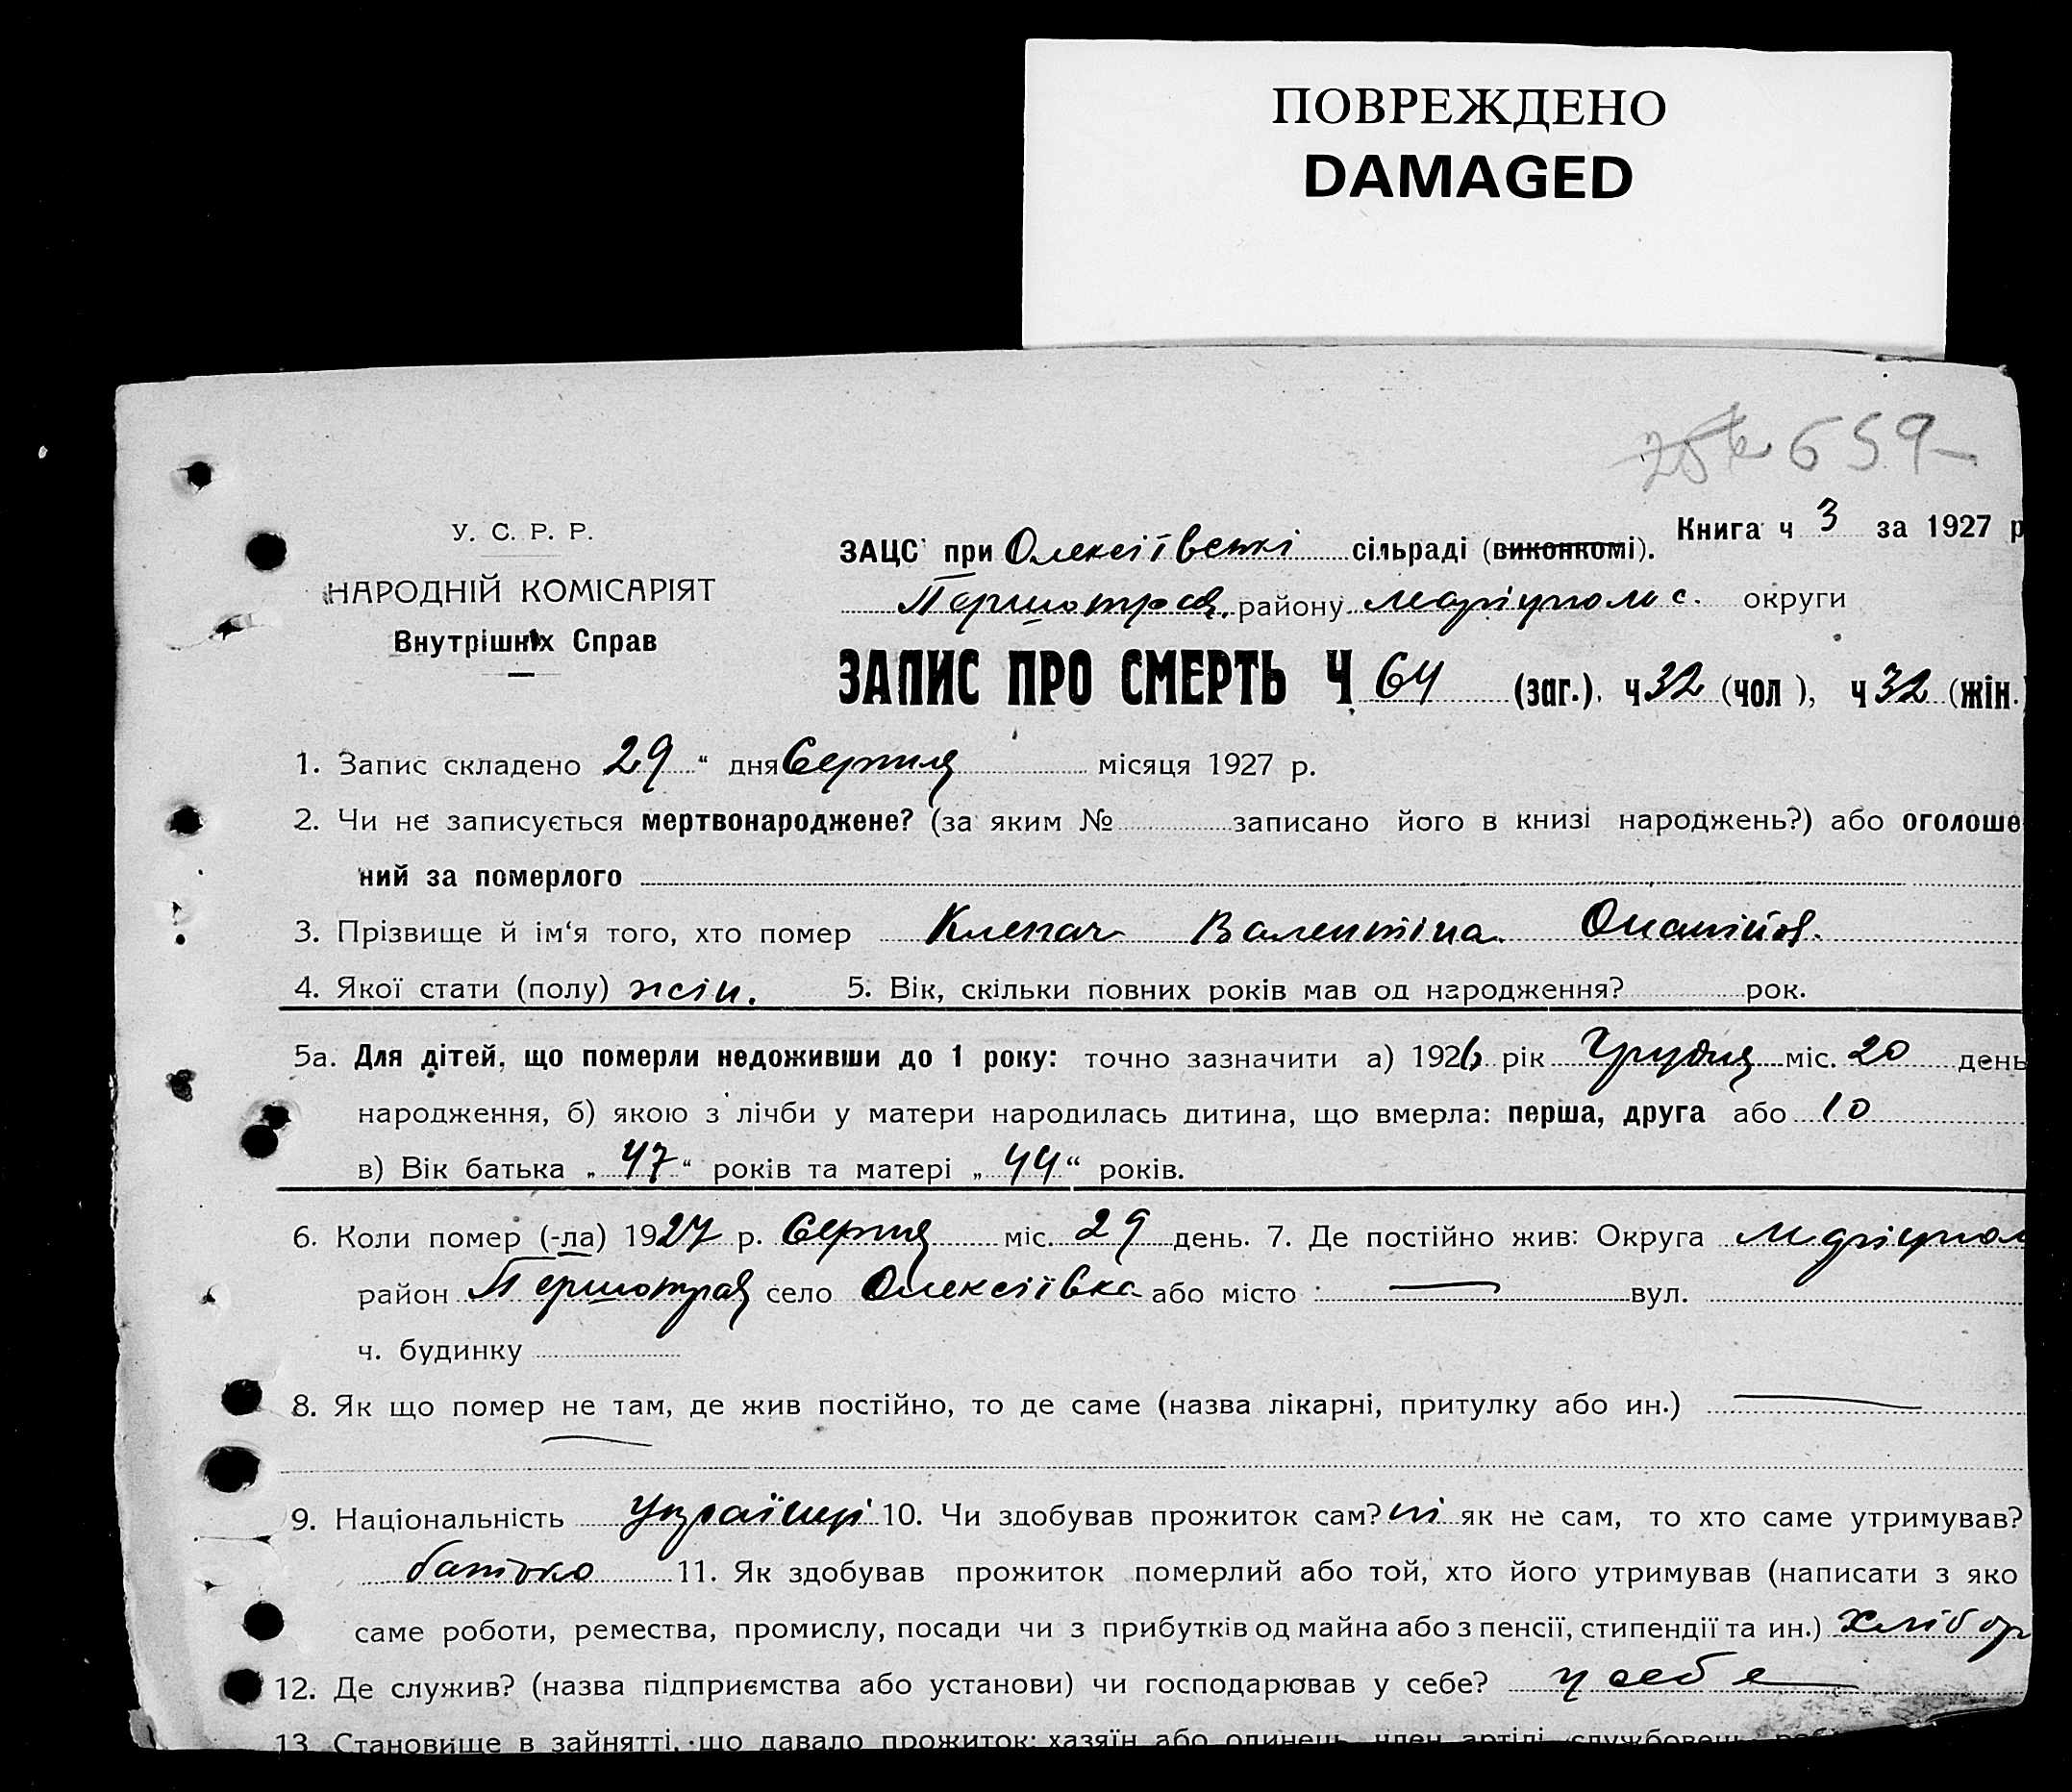 ПОВРЕЖДЕНО
DAMAGED
659
У. С. Р. Р.
НАРОДНІЙ КОМІСАРІЯТ
Внутрішніх Справ
Книга ч 3 за 1927 р
ЗАЦС при Олексіївські сільраді (виконкомі).
Першотрав. району Маріупольс. округи
ЗАПИС ПРО СМЕРТЬ Ч 64 (заг.). ч 32 (чол ), ч 32 (жін.)
1. Запис складено 29 " дня Серпня місяця 1927 р.
2. Чи не записується мертвонароджене? (за яким № записано його в книзі народжень?) або оголоше
ний за померлого
3. Прізвище й ім'я того, хто помер Клепач Валентіна
4. Якої статі (полу) жін. 5. Вік, скільки повних років мав од народження? рок.
5а. Для дітей, що померли недоживши до 1 року: точно зазначити а) 1926 рік Грудня міс. 20 день
народження, б) якою з лічби у матери народилась дитина, що вмерла: перша, друга або 10
в) Вік батька „ 47 “ років та матері „ 44 “ років.
6. Коли помер (-ла) 1927 р. Серпня міс. 29 день. 7. Де постійно жив: Округа Маріупол
район Першотрав село Олексіївка або місто — вул.
ч. будинку
8. Як що помер не там, де жив постійно, то де саме (назва лікарні, притулку або ин.) —
9. Національність Українці 10. Чи здобував прожиток сам? ні як не сам, то хто саме утримував?
батько 11. Як здобував прожиток померлий або той, хто його утримував (написати з яко
саме роботи, ремества, промислу, посади чи з прибутків од майна або з пенсії, стипендії та ин.) Хлібор
12. Де служив? (назва підприємства або установи) чи господарював у себе? у себе
13. Становище в зайнятті, що давало прожиток: хазяїн або одинець, член артілі, службовець,